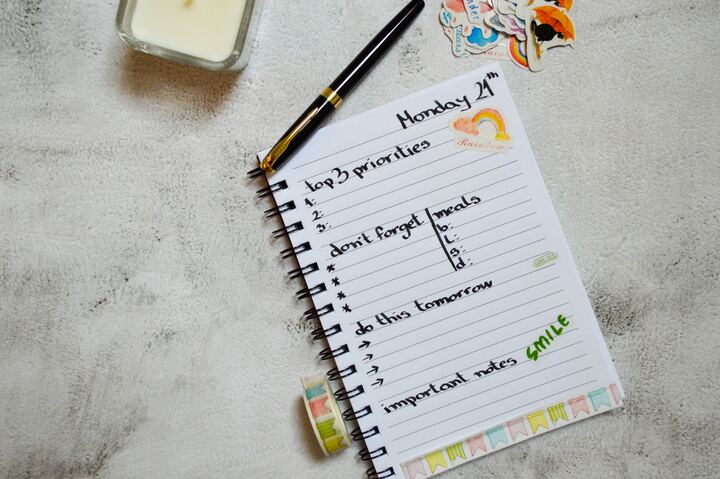 Monday 21th
Rainbow
top 3 priorities
1:
2:
3:
don't forget
*
*
*
*
meals
b:
l:
s:
d:
do this tomorrow
→
→
→
→
important notes
SMILE